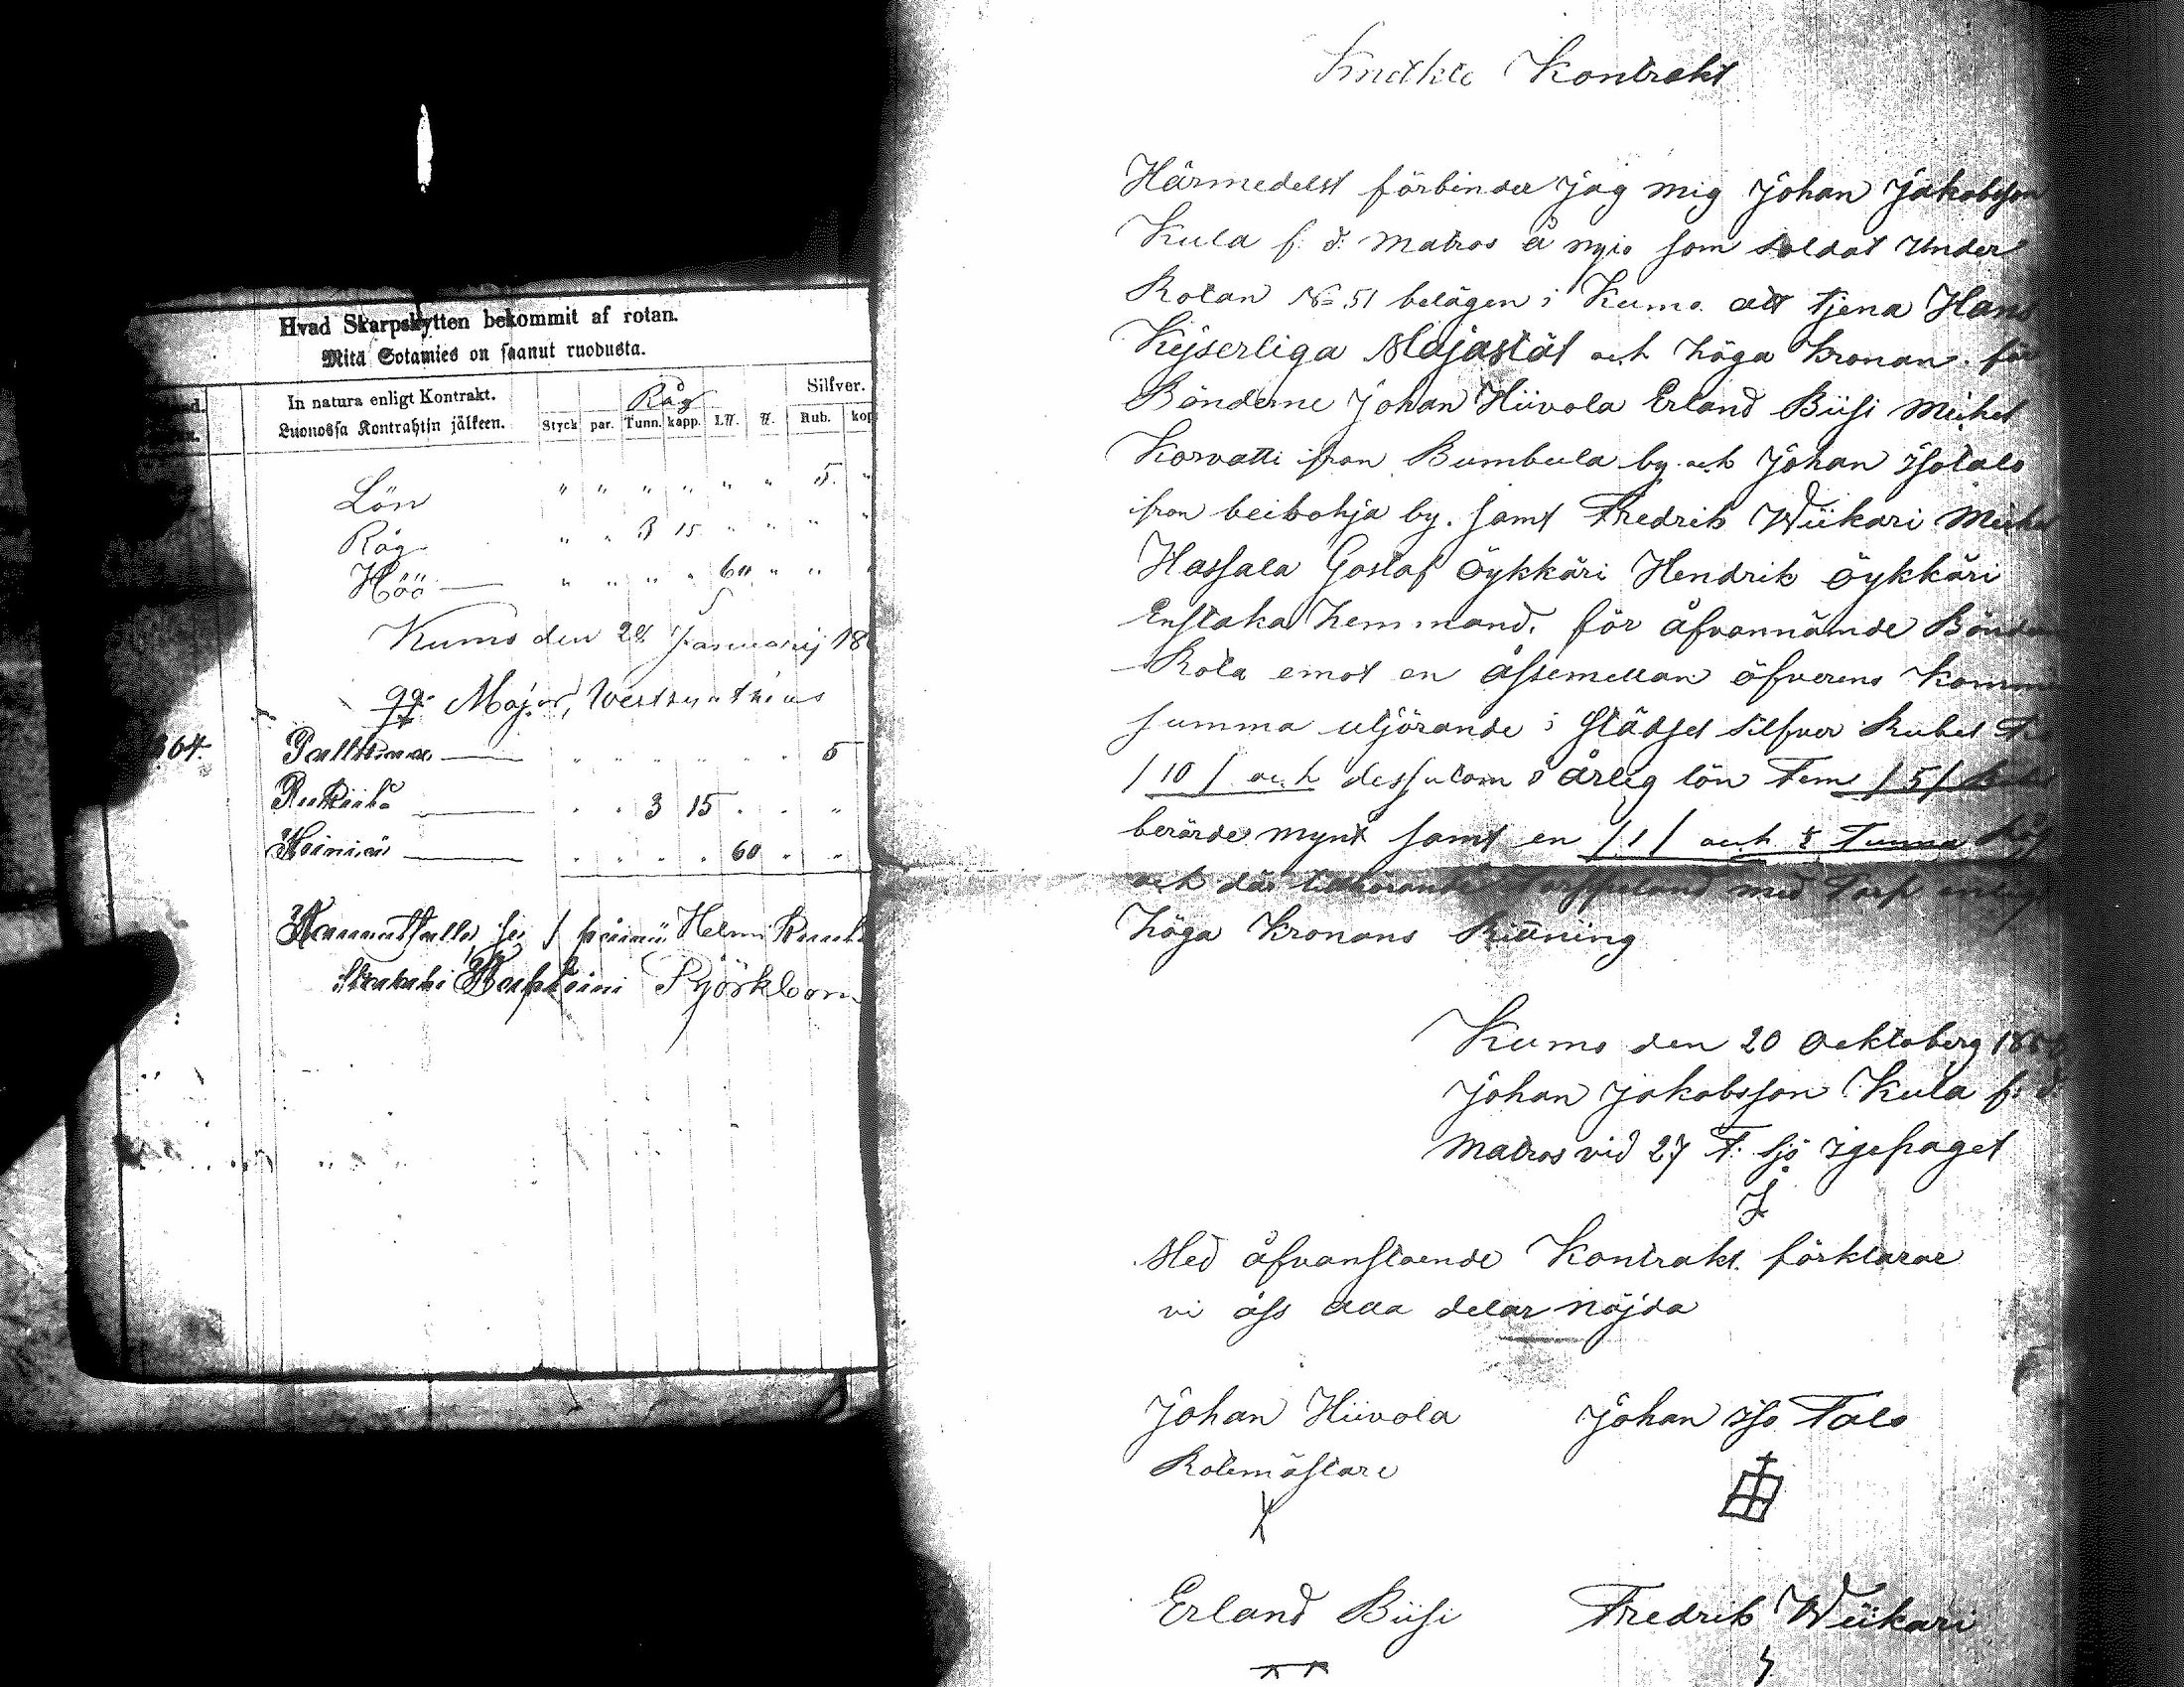 Hvad Skarpskytten bekommit af rotan.
Mitä Sotamies on saanut ruodusta.
In natura enligt Kontrakt.
Luonossa Kontrahtin jälkeen.
Råg
Silfver.
Styck par. Tunn. kapp. L℔. ℔. Rub. kop
Lön " " " " " " 5. "
Råg " " 3 15 " " " "
Höö " " " " 60 " "
Kumo den Januarij 18
Major,
64.
5
3 15
60
Helmi
Björkbom
Kontrakt
Härmedelst förbinder jag mig Johan Jakobsson
Kula f: d: Matros å nyio som soldat under
Rotan No 51 belägen i Kumo att tjena Hans
Kejserliga Majastät och höga Kronan för
Bönderne Johan Hiivola Erland Biisi Mickel
Korvatti ifron Bumbula by och Johan Isotalo
ifron beibohja by. samt Fredrik Wiikari Michel
Hassala Gostaf öykkäri Hendrik öykkäri
Enstaka hemmand, för åfvannämde Bönder
Rota emot en åssemellan öfverens
summa utjörande i städsel silfver Rubel
/ 10 / och dessutom i årlig lön Fem / 5 /
berörde mynt samt en / 1 / och ½ Tunna
och där tillhörande Torppeland med Torp enligt
höga Kronans Rittning
Kumo den 20 Oektoberg 18
Johan Jakobsson Kula f: d:
Matros vid 27 F: sjö
Med åfvanstaende Kontrakt. förklarar
vi åss alla delar nöjda
Johan Hiivola Johan Iso Talo
Rotemästare
Erland Biisi Fredrik Wiikari